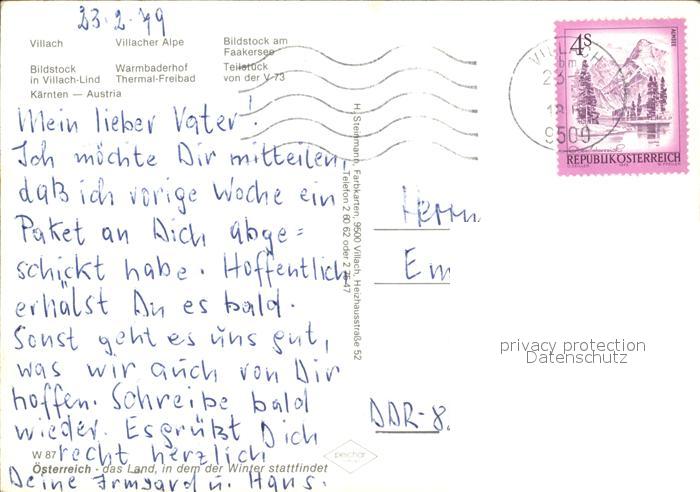 23.2.79
Villach
Villacher Alpe
Bildstock am
Faakersee
Bildstock
in Villach-Lind
Warmbaderhof
Thermal-Freibad
Teilstück
von der V 73
Kärnten — Austria
Mein lieber Vater!
Ich möchte Dir mitteilen,
daß ich vorige Woche ein
Paket an Dich abge=
schickt habe. Hoffentlich
erhälst Du es bald.
Sonst geht es uns gut,
was wir auch von Dir
hoffen. Schreibe bald
wieder. Es grüßt Dich
recht herzlich
Deine Irmgard u. Hans.
W 87
Österreich - das Land, in dem der Winter stattfindet
H. Steinmann, Farbkarten, 9500 Villach, Heizhausstraße 52
Telefon 2 60 62 oder 2 76 47
VILLACH
9500
4S
ALMSEE
REPUBLIK ÖSTERREICH
Herrn
Em
privacy protection
Datenschutz
DDR-8.